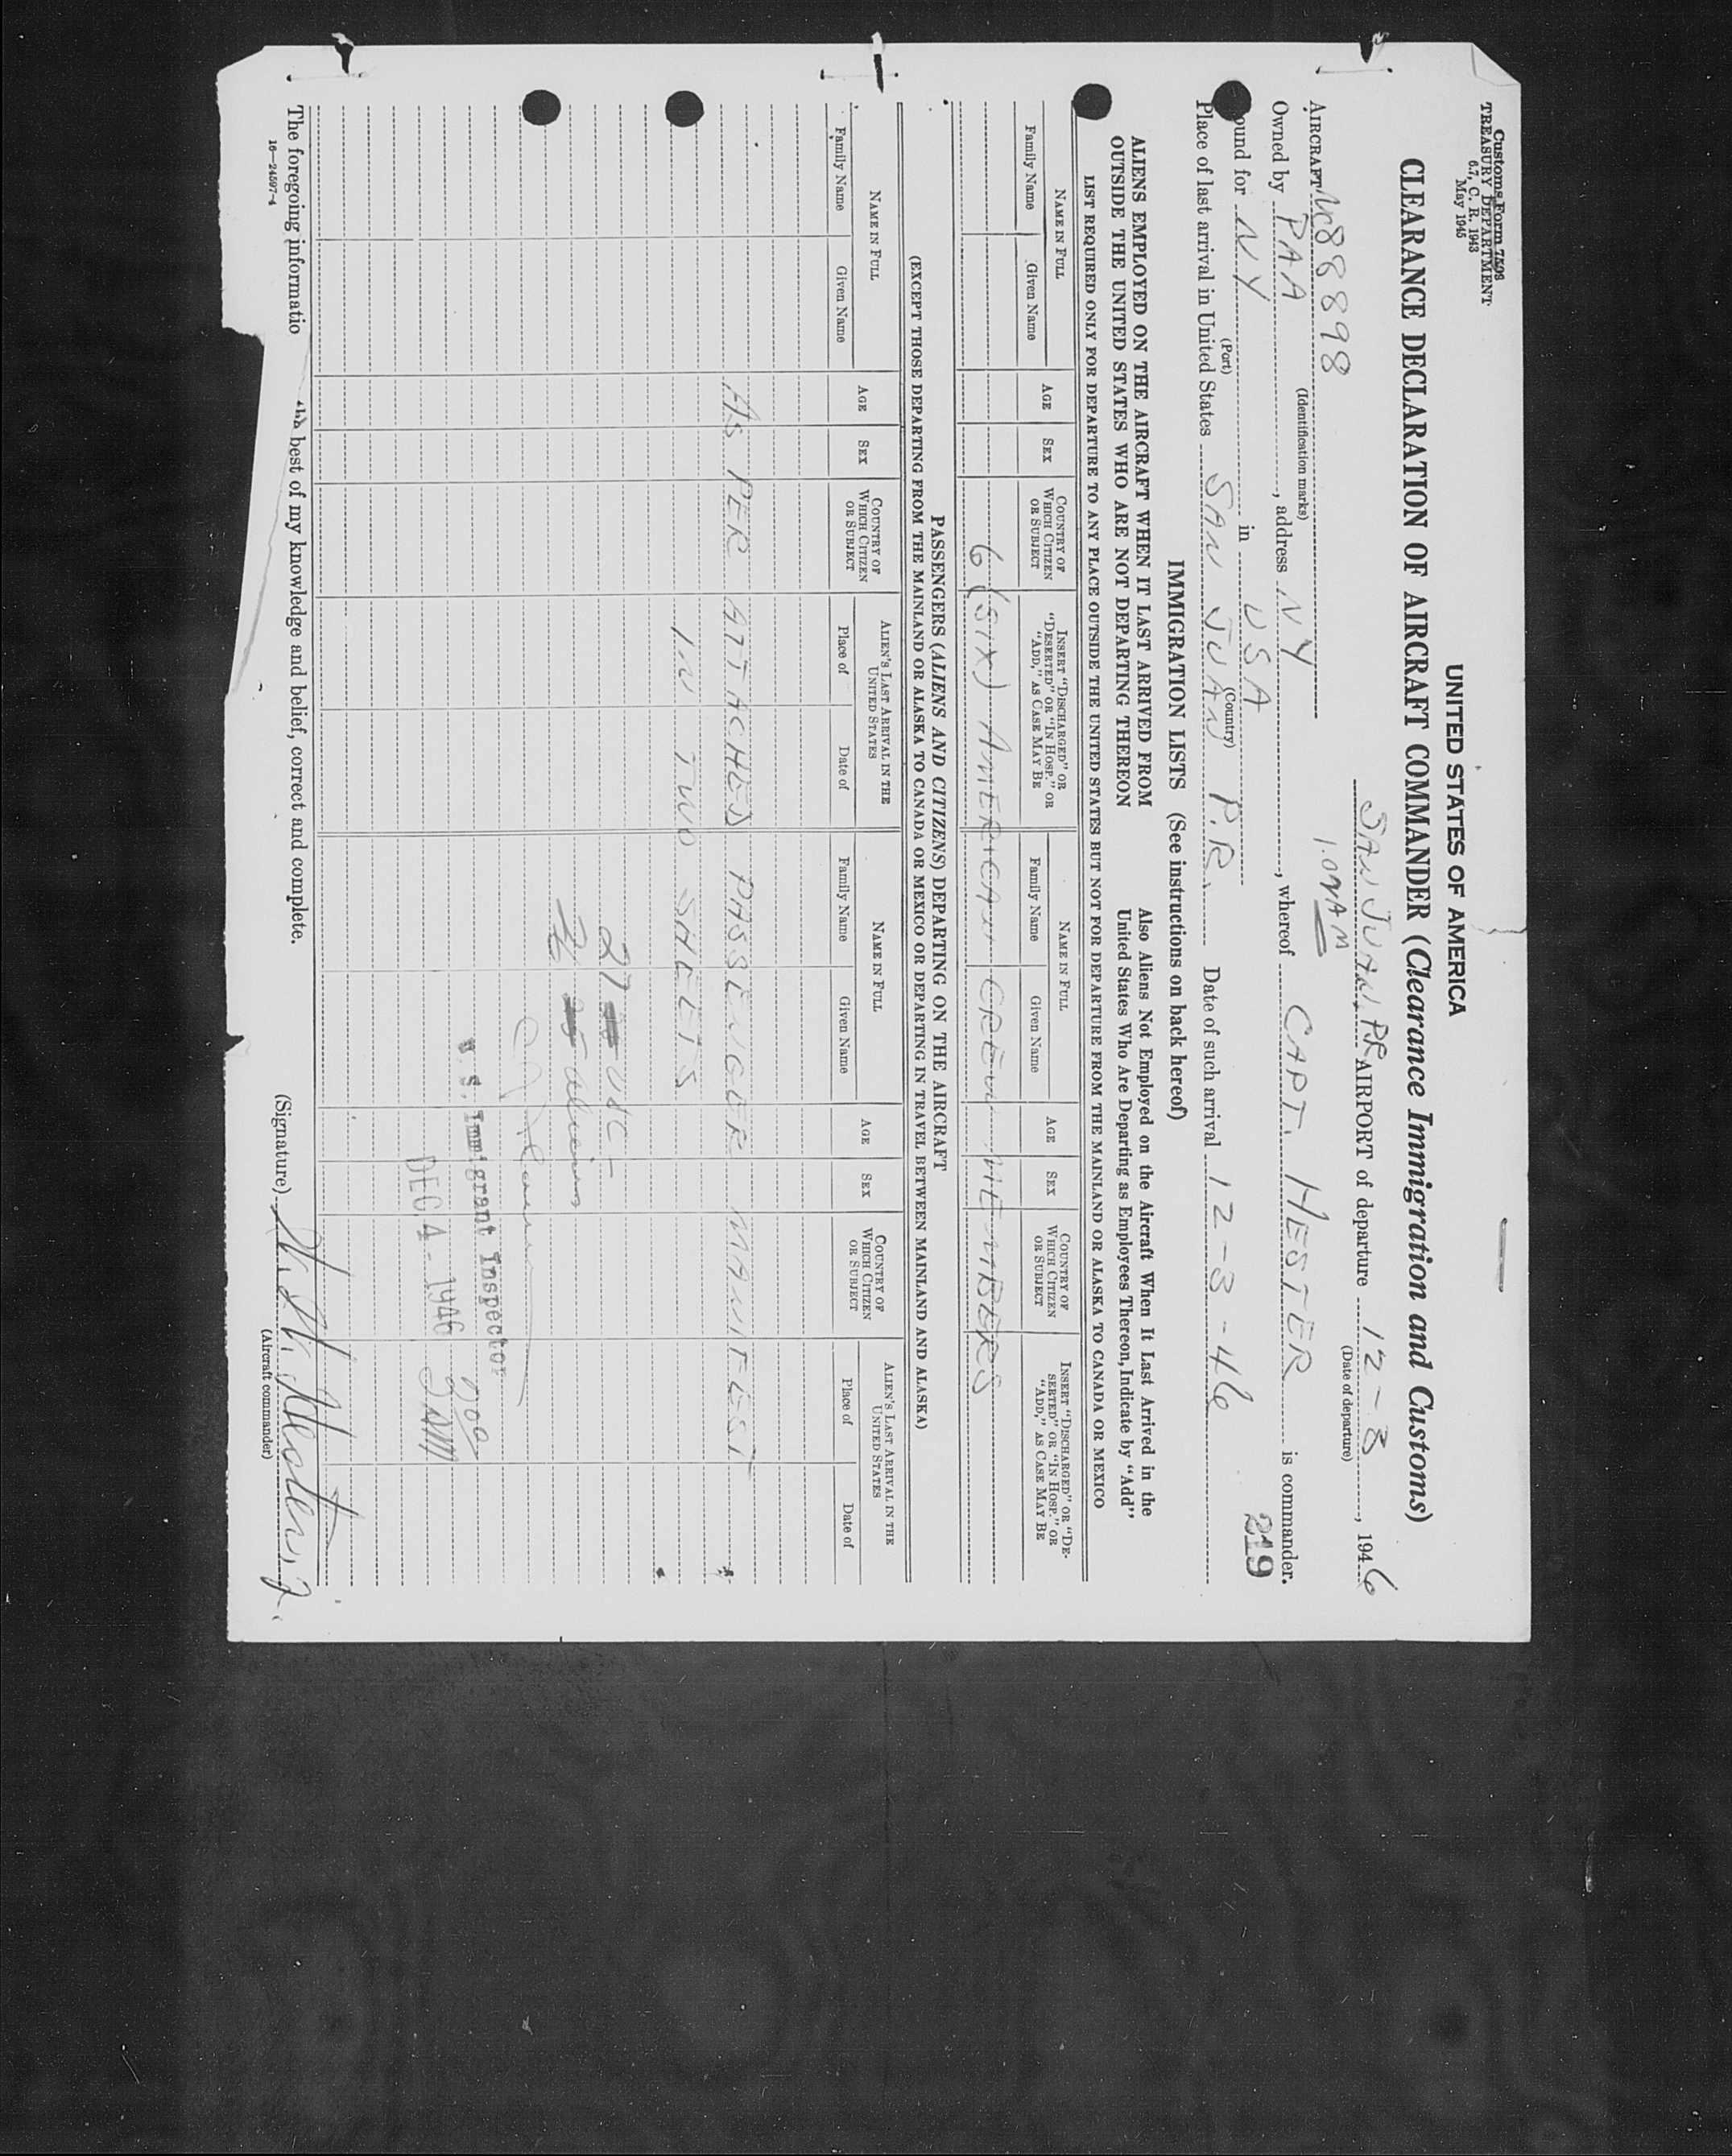 Customs Form 7598
TREASURY DEPARTMENT
6.7, C. R. 1943
May 1945
UNITED STATES OF AMERICA
CLEARANCE DECLARATION OF AIRCRAFT COMMANDER (Clearance Immigration and Customs)
SAN JUAN, PR AIRPORT of departure 12-3, 1946
(Date of departure)
AIRCRAFT NC88898
(Identification marks)
Owned by PAA, address NY, whereof CAPT. HESTER is commander.
ound for NY in USA
219
(Port) (Country)
Place of last arrival in United States SAN JUAN P.R. Date of such arrival 12-3-46
IMMIGRATION LISTS (See instructions on back hereof)
ALIENS EMPLOYED ON THE AIRCRAFT WHEN IT LAST ARRIVED FROM OUTSIDE THE UNITED STATES WHO ARE NOT DEPARTING THEREON
Also Aliens Not Employed on the Aircraft When It Last Arrived in the United States Who Are Departing as Employees Thereon, Indicate by "Add"
LIST REQUIRED ONLY FOR DEPARTURE TO ANY PLACE OUTSIDE THE UNITED STATES BUT NOT FOR DEPARTURE FROM THE MAINLAND OR ALASKA TO CANADA OR MEXICO
NAME IN FULL AGE SEX COUNTRY OF WHICH CITIZEN OR SUBJECT INSERT "DISCHARGED" OR "DESERTED" OR "IN HOSP." OR "ADD," AS CASE MAY BE NAME IN FULL AGE SEX COUNTRY OF WHICH CITIZEN OR SUBJECT INSERT "DISCHARGED" OR "DESERTED" OR "IN HOSP." OR "ADD," AS CASE MAY BE
Family Name Given Name Family Name Given Name
6 (SIX) AMERICAN CREW MEMBERS
PASSENGERS (ALIENS AND CITIZENS) DEPARTING ON THE AIRCRAFT
(EXCEPT THOSE DEPARTING FROM THE MAINLAND OR ALASKA TO CANADA OR MEXICO OR DEPARTING IN TRAVEL BETWEEN MAINLAND AND ALASKA)
NAME IN FULL AGE SEX COUNTRY OF WHICH CITIZEN OR SUBJECT ALIEN'S LAST ARRIVAL IN THE UNITED STATES NAME IN FULL AGE SEX COUNTRY OF WHICH CITIZEN OR SUBJECT ALIEN'S LAST ARRIVAL IN THE UNITED STATES
Family Name Given Name Place of Date of Family Name Given Name Place of Date of
AS PER ATTACHED PASSENGER MANIFEST
IN TWO SHEETS
27 USC -
aliens
S. Immigrant Inspector
DEC 4 - 1946 200 AM
The foregoing informatio best of my knowledge and belief, correct and complete.
(Signature) W. W. Hester, Jr.
(Aircraft commander)
16—24597-4